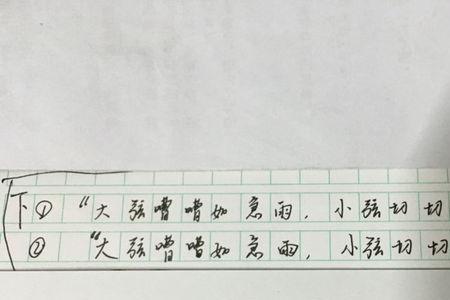 下① “大弦嘈嘈如急雨，小弦切切
② “大弦嘈嘈如急雨，小弦切切